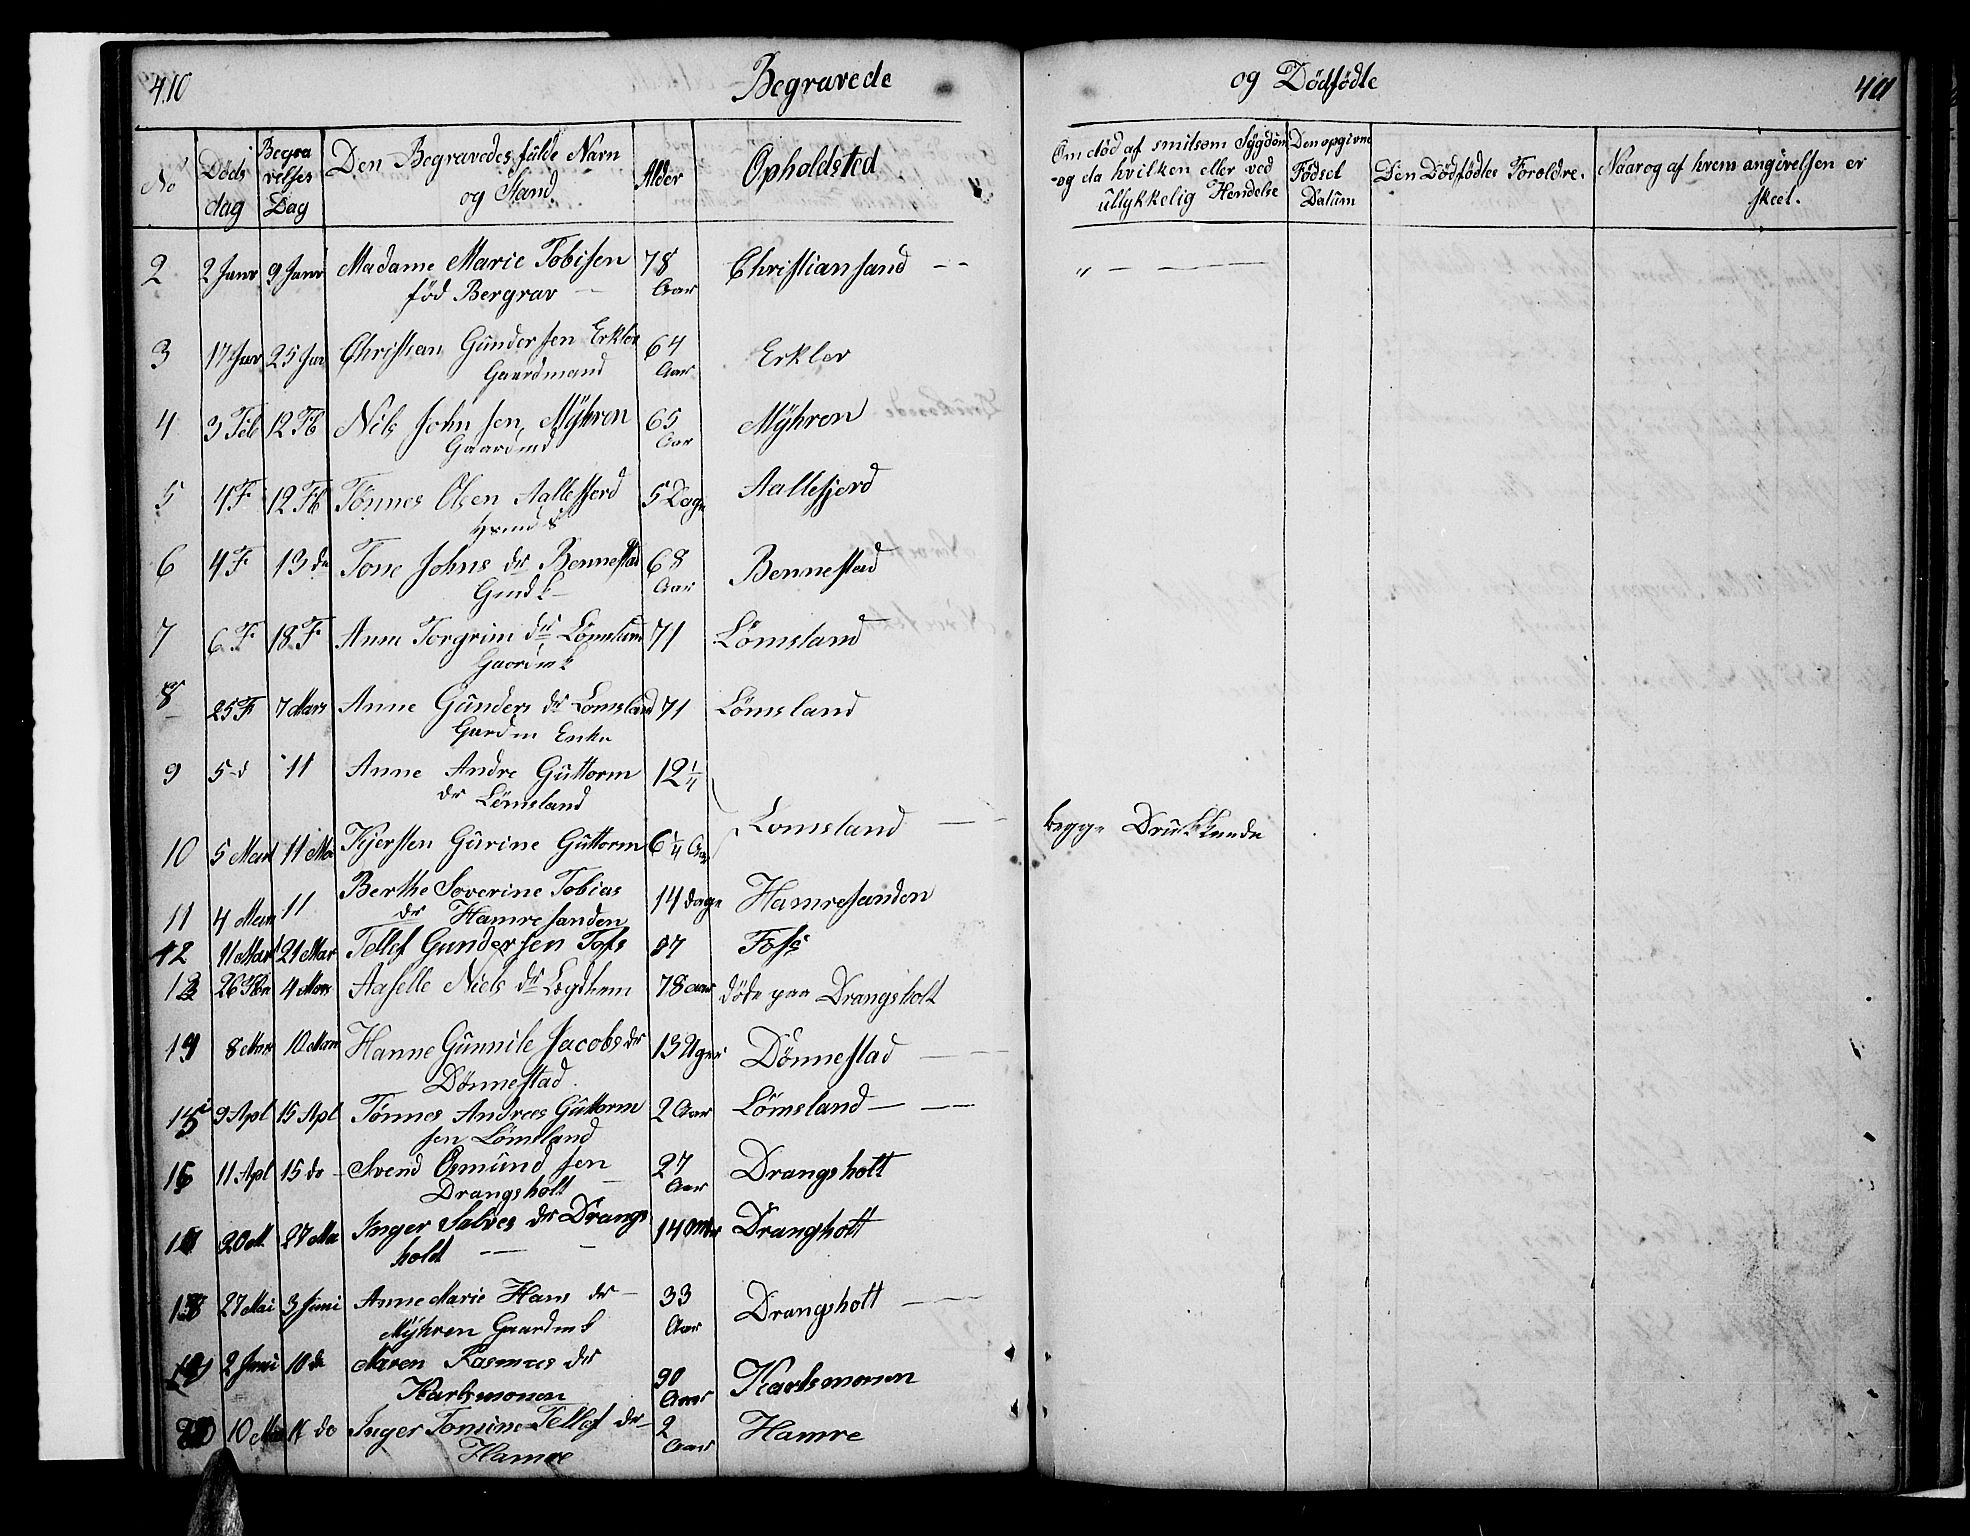 410
Begravede
og Dödfödte
No
Döds dag
Begravelses Dag
Den Begravedes fulde Navn og Stand
Alder
Opholdsted
Om död af smitsom Sÿgdom og da hvilken eller ved ullykkelig Hendelse
Den opgivne Födsel Datum
Den Dödfödtes Forældre.
Naar og af hvem angivelsen er skeet.
2 2 Janr 9 Janr Madame Marie Tobisen 78 Christiansand
föd Bergrav Aar
3 17 Janr 25 Jan Christian Gundersen Erkler 64 Erkler
Gaardmand Aar
4 3 Feb 12 Fb Nils Johnsen, Mÿhren 65 Mÿhren
Gaardmd Aar
5 4 F 12 Fb Tönnes Olsen Aallefjerd 5 Dage Aallefjord
6 4 F 13 do Tone Johns dr Bennestad 68 Bennestad
Gmdk Aar
7 6 F 18 F Anne Torgrim dr Lömsland 71 Lömsland
Gaardmk
8 25 F 7 Mars Anne Gunders dr Lomsland 71 Lömsland
Gardm Enke
9 5 d 11 Anne Andre Guttorm 12 1/4
dr Lömsland
Lomsland begge Drukknede
10 5 Mart 11 Mar Kjersten Gurine Guttorm 6 1/4 Aar
11 4 Mars 11 Berthe Soverine Tobias 14 dage Hamresanden
dr Hamresanden
12 11 Mart 21 Mar Tellef Gundersen Fofs 87 Fofs
13 26 Feb 4 Mars Aaselle Niels dr 78 aar döde paa Drangsholt
14 8 Mars 10 Mars Hanne Gunnile Jacobs dr 13 Uger Dönnestad
Dönnestad
15 9 Apl 15 Apl Tönnes Andrees Guttorm 2 Aar Lömsland
sen Lömsland
16 11 Apl 15 do Svend Osmund sen 27 Drangsholt
Drangsholt Aar
17 20 M 27 Ma Inger Salves dr Drangs 14 Drangholt
holdt
18 27 Mai 3 Juni Anne Marie Hans dr 33 Drangsholt
Mÿhren Gaardmk Aar
19 2 Juni 10 do Maren Rasmus dr 90 Karlsmonen
Karlsmonen Aar
20 10 do Inger Tomine Tellef dr 2 Hamre
Hamre Aar